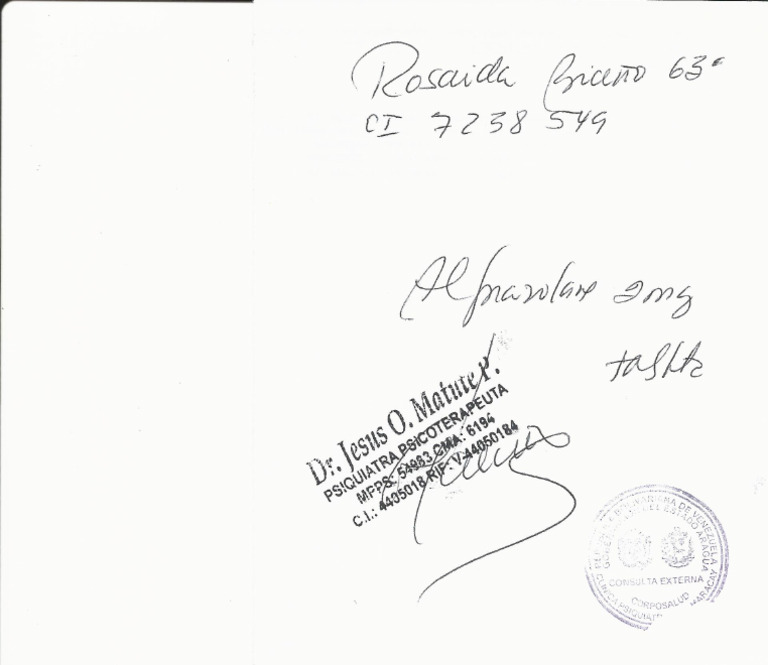 Rosaida Briceño 63ª
CI 7238 549
Alprazolam 2mg
tablta
Dr. Jesus O. Matute P.
PSIQUIATRA PSICOTERAPEUTA
MPPS: 54983 CMA: 6194
C.I.: 4405018 RIF: V-44050184
REPUBLICA BOLIVARIANA DE VENEZUELA
GOBIERNO DEL ESTADO ARAGUA
CONSULTA EXTERNA
CORPOSALUD
MARACAY